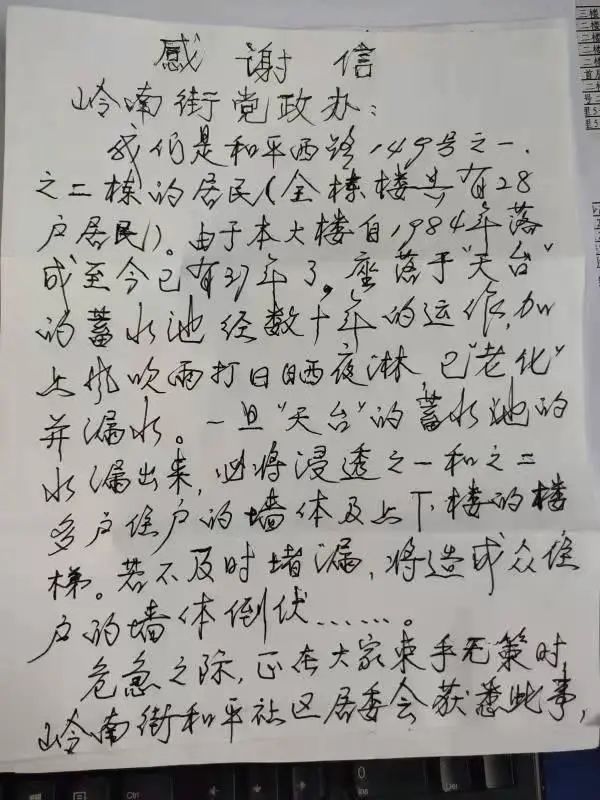 感谢信
岭南街党政办：
我们是和平西路149号之一、
之二栋的居民(全栋楼共有28
户居民)。由于本大楼自1984年落
成至今已有37年了。座落于"天台"
的蓄水池经数十年的运作,加
上风吹雨打日晒夜淋,已"老化"
并漏水。一旦"天台"的蓄水池的
水漏出来,必将浸透之一和之二
多户住户的墙体及上下楼的楼
梯。若不及时堵漏,将造成众住
户的墙体倒伏……。
危急之际,正在大家束手无策时,
岭南街和平社区居委会获悉此事,
三楼
二楼
二楼
二楼
二楼
首层
0
Ins
Del